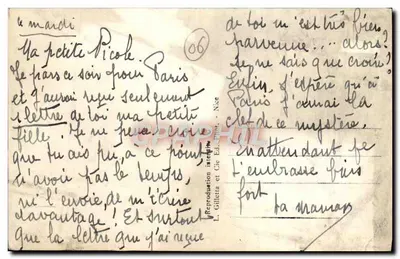 le mardi
Ma petite Nicole.
Je pars ce soir pour Paris
et j'aurai reçu seulement
1 lettre de toi ma petite
fille. Je ne peux croire
que tu aies pu, à ce point,
n'avoir pas le temps,
ni l'envie, de m'écrire
davantage! Et surtout
que la lettre que j'ai reçue
de toi m'est très bien
parvenue.... alors?
je ne sais que croire!
Enfin, j'espère qu'à
Paris j'aurai la
clef de ce mystère.
En attendant je
t'embrasse bien
fort
ta maman
06
Reproduction interdite
L. Gilletta et Cie Ed. Nice